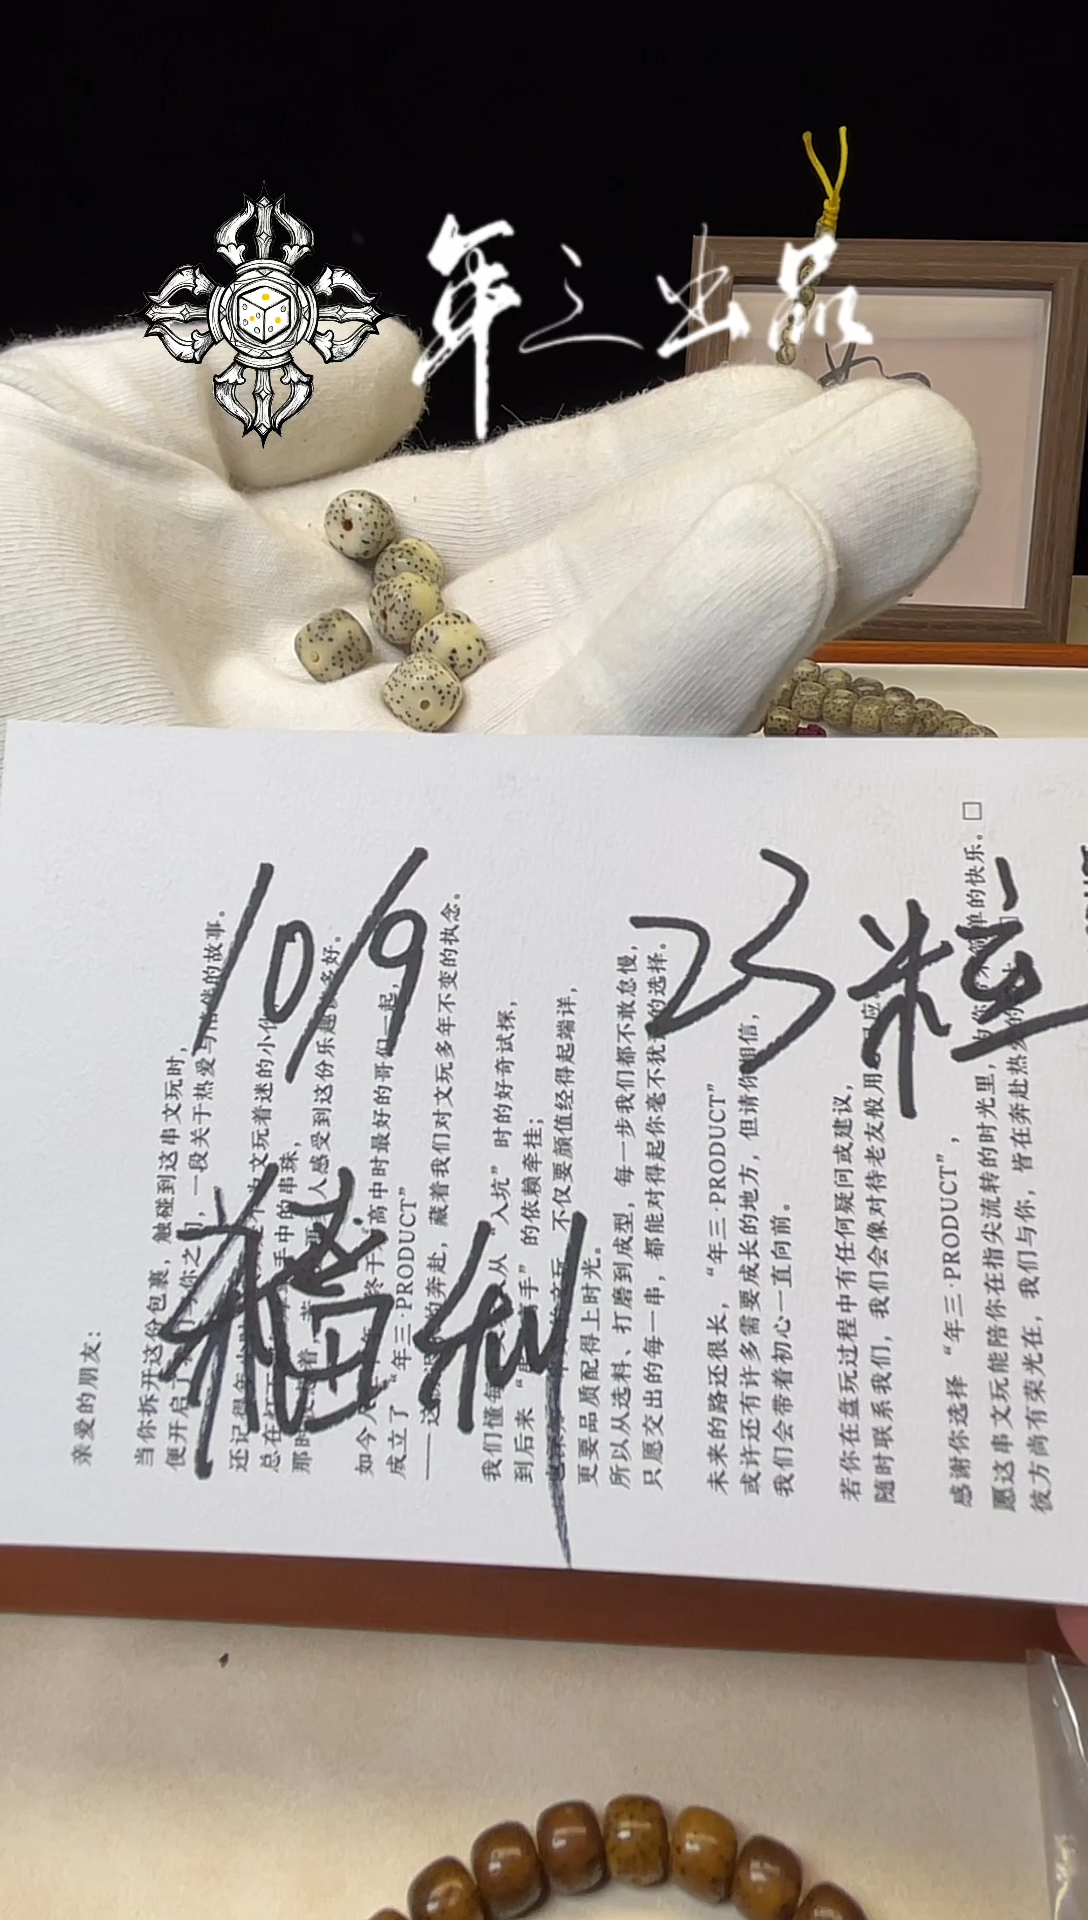 年之出品
10/9
23粒
亲爱的朋友：
当你拆开这份包裹，触碰到这串文玩时，
一段关于热爱与
的故事。
还记得
文玩着迷的小
总在
手中的串珠，
那时
人感受到这份乐趣
多好。
高中时最好的哥们一起，
成立了“年三·PRODUCT”
的奔赴，藏着我们对文玩多年不变的执念。
我们懂每
从“入坑”时的好奇试探，
到后来“
手”的依赖牵挂；
文玩，不仅要颜值经得起端详，
更要品质配得上时光。
所以从选料、打磨到成型，每一步我们都不敢怠慢，
只愿交出的每一串，都能对得起你毫不犹豫的选择。
未来的路还很长，“年三·PRODUCT”
或许还有许多需要成长的地方，但请你相信，
我们会带着初心一直向前。
若你在盘玩过程中有任何疑问或建议，
随时联系我们，我们会像对待老友般用
感谢你选择“年三·PRODUCT”，
愿这串文玩能陪你在指尖流转的时光里，
简单的快乐。
彼方尚有荣光在，我们与你，皆在奔赴热爱的